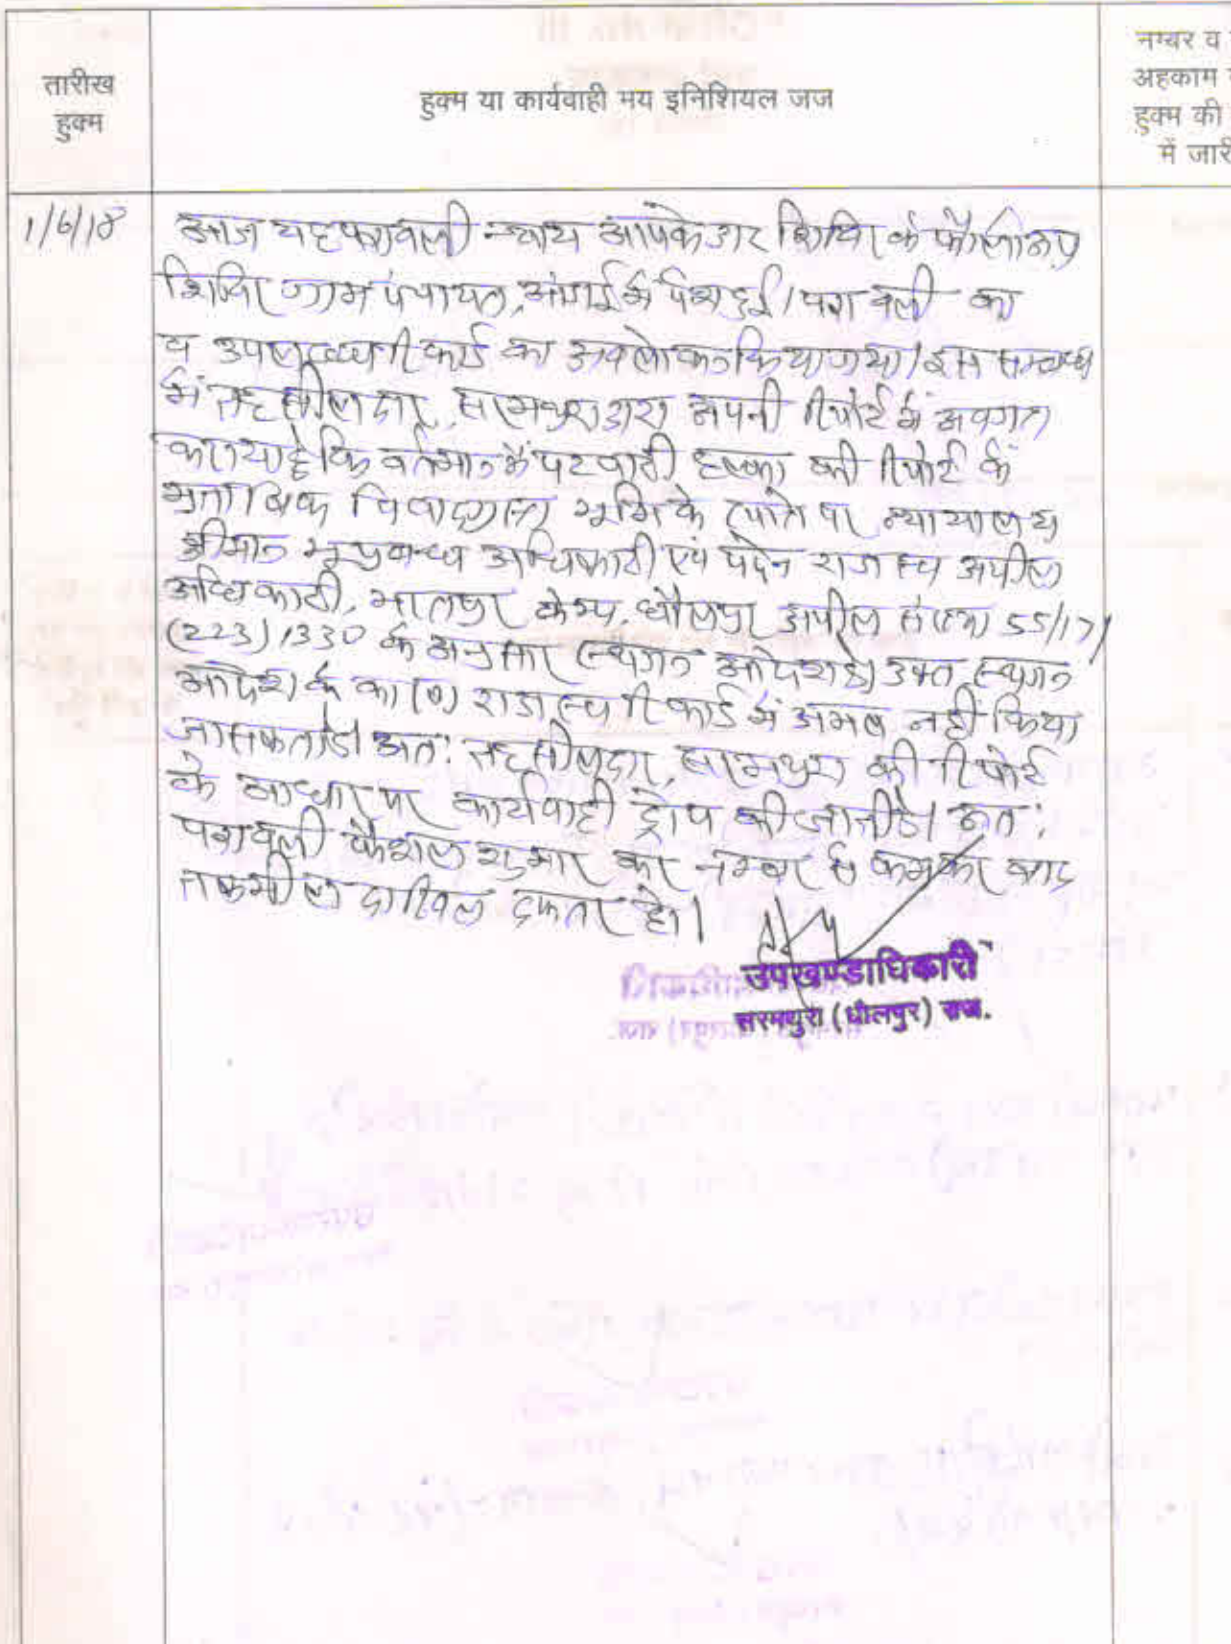 तारीख
हुक्म
हुक्म या कार्यवाही मय इनिशियल जज
नम्बर व
अहकाम
हुक्म की
में जारी
1/6/18
आज यह पत्रावली न्याय आपके द्वार शिविर के फौलोअप
शिविर ग्राम पंचायत, में पेश हुई। पत्रावली का
व उपलब्ध रिकार्ड का अवलोकन किया गया। इस सम्बन्ध
में तहसीलदार, सरमथुरा द्वारा अपनी रिपोर्ट में अवगत
कराया है कि वर्तमान में पटवारी हल्का की रिपोर्ट के
मुताबिक विवादग्रस्त भूमि के खाते पर न्यायालय
श्रीमान भूप्रबन्ध अधिकारी एवं पदेन राजस्व अपील
अधिकारी, भरतपुर केम्प, धौलपुर अपील संख्या 55/17/
(223)/330 के अनुसार स्थगन आदेश है। उक्त स्थगन
आदेश के कारण राजस्व रिकार्ड में अमल नहीं किया
जा सकता है। अत: तहसीलदार, सरमथुरा की रिपोर्ट
के आधार पर कार्यवाही ड्रोप की जाती है। अत:
पत्रावली फैशल शुमार कर नम्बर से कम कर बाद
तकमील दाखिल दफ्तर हो।
उपखण्डाधिकारी
सरमथुरा (धौलपुर) राज.